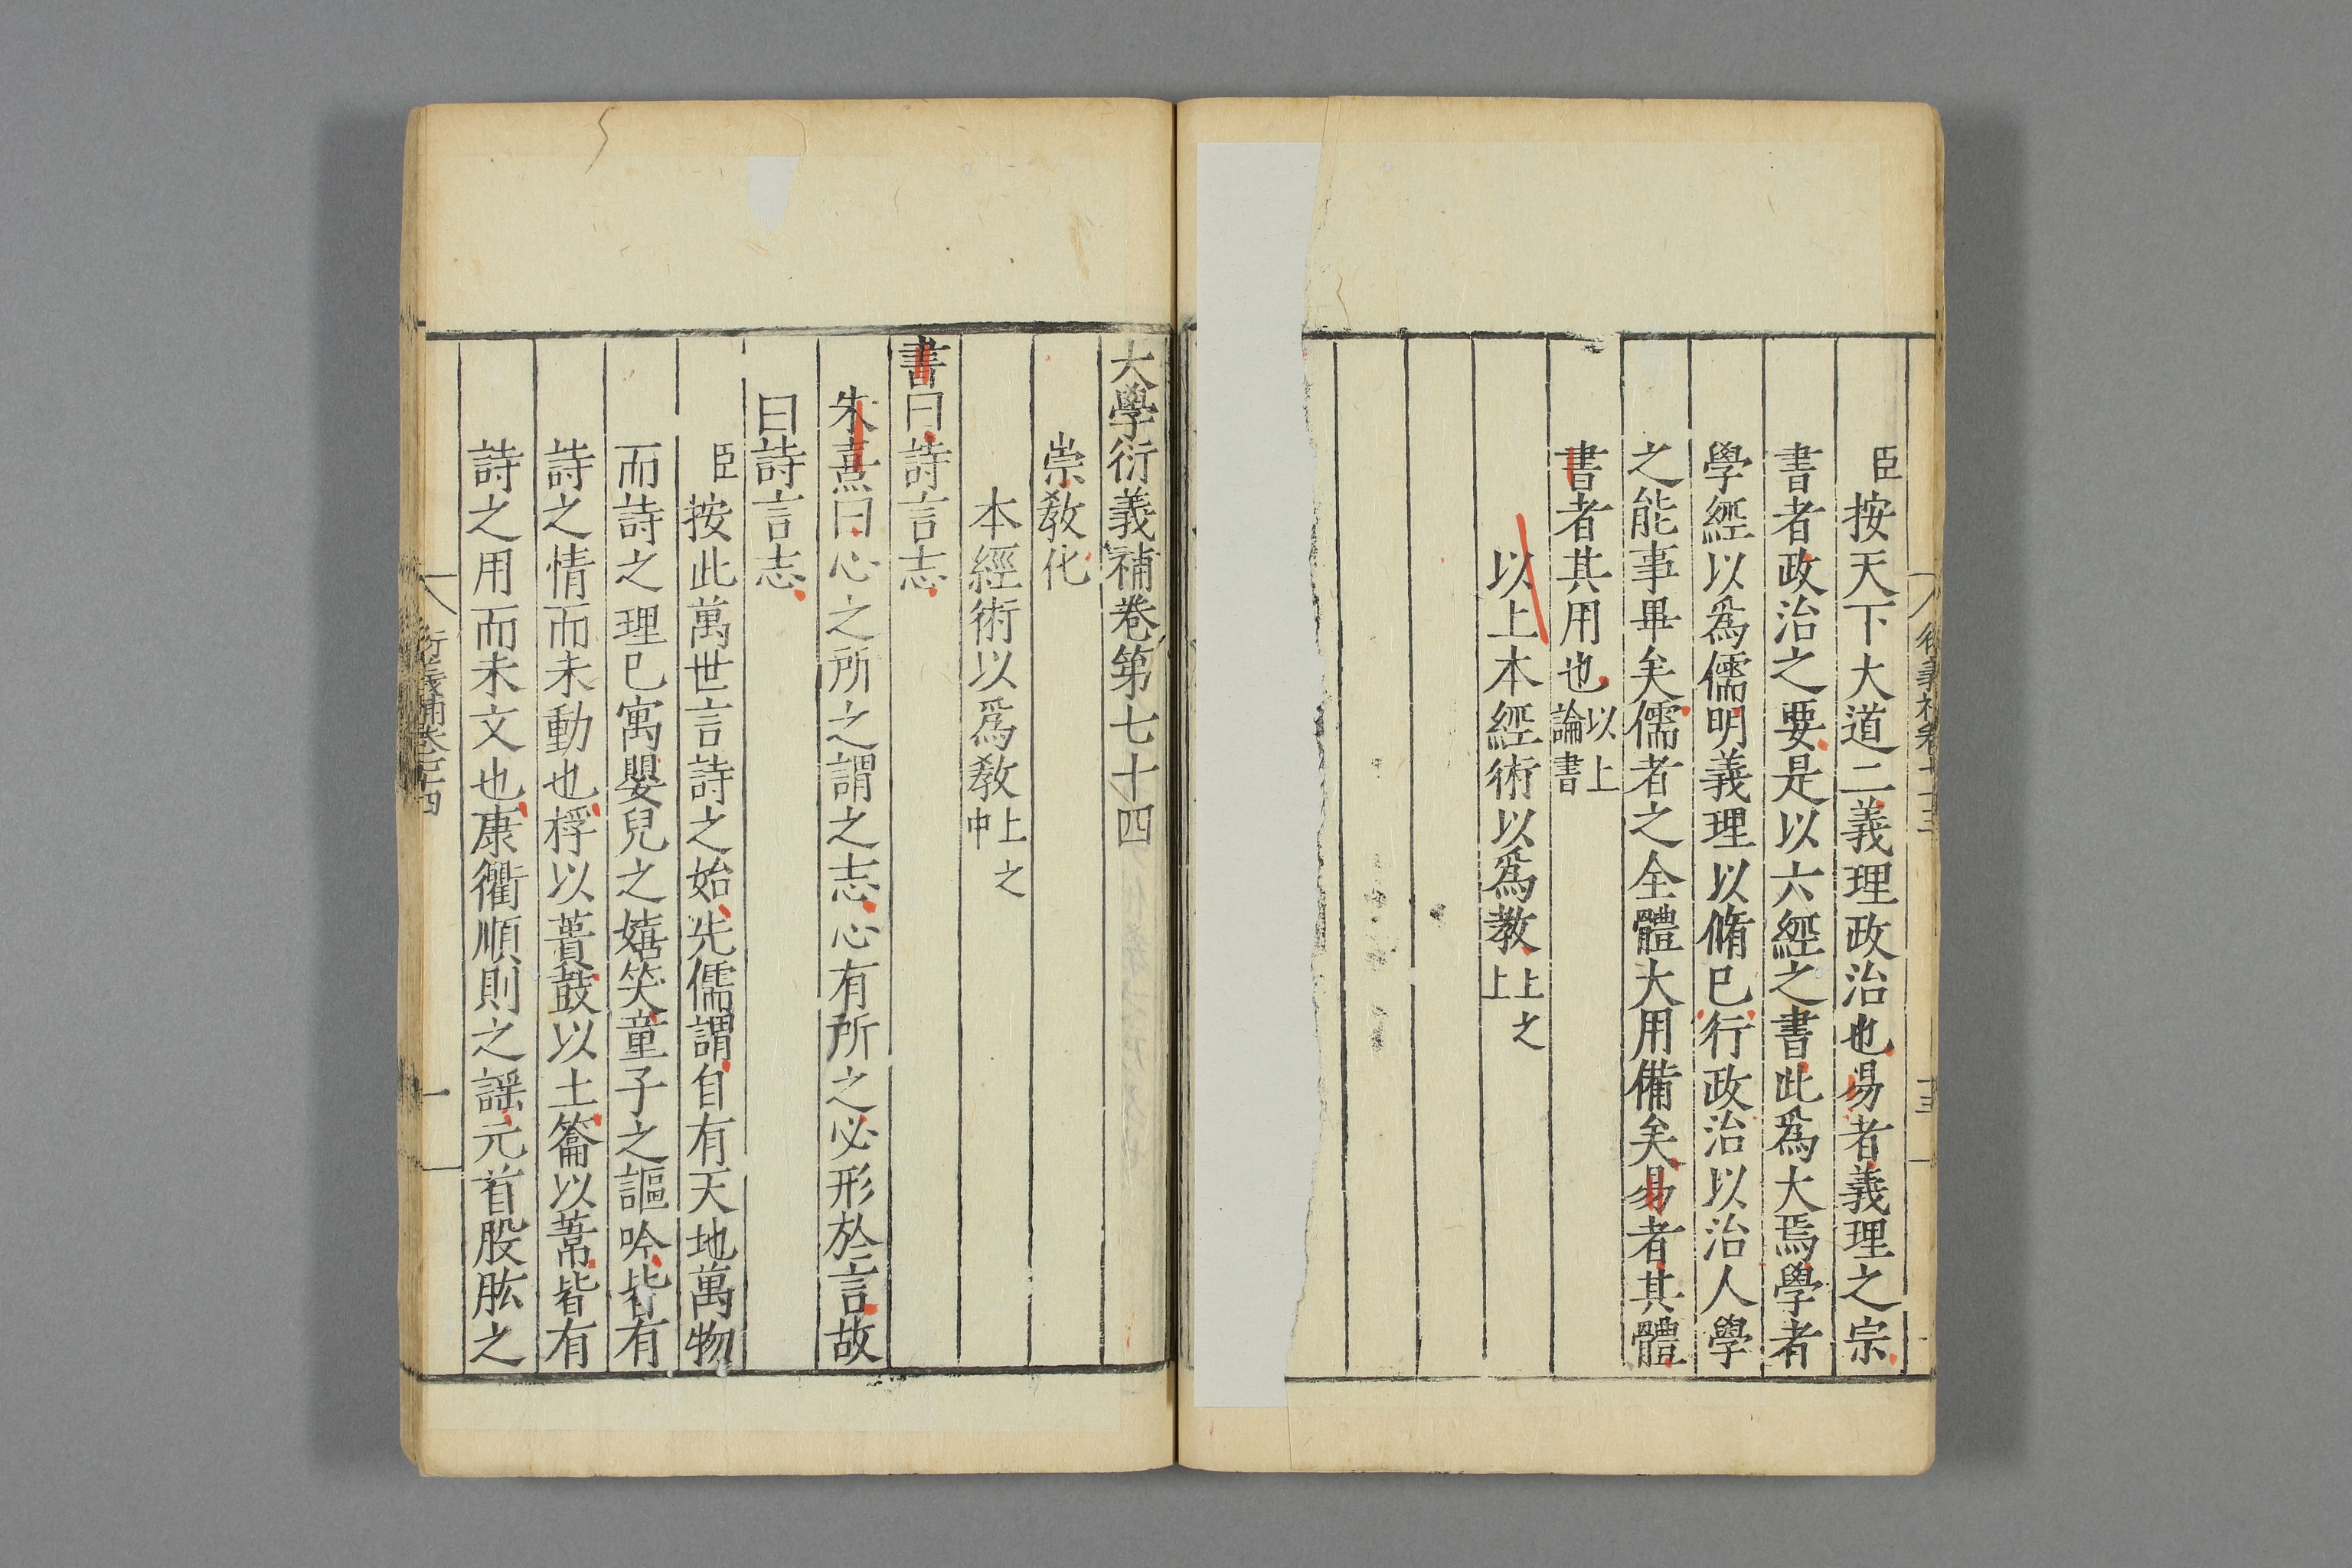 臣按天下大道二義理政治也易者義理之宗
書者政治之要是以六經之書此爲大焉學者
學經以爲儒明義理以脩己行政治以治人學
之能事畢矣儒者之全體大用備矣易者其體
書者其用也以上論書
以上本經術以爲教上之上
大學衍義補卷第七十四
崇教化
本經術以爲教上之中
書曰詩言志
朱熹曰心之所之謂之志心有所之必形於言故
曰詩言志
臣按此萬世言詩之始先儒謂自有天地萬物
而詩之理已寓嬰兒之嬉笑童子之謳吟皆有
詩之情而未動也桴以蕢鼓以土籥以葦皆有
詩之用而未文也康衢順則之謡元首股肱之
衍義補卷七十四
一